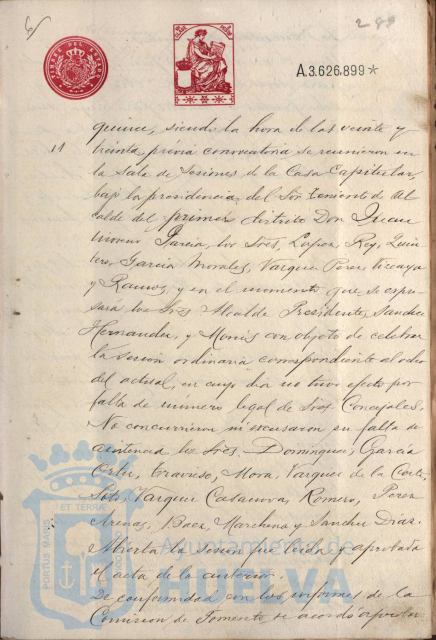 289
TIMBRE DEL ESTADO
A.3.626.899*
11
quince, siendo la hora de las veinte y
treinta, prévia convocatoria se reunieron en
la Sala de Sesiones de la Casa Capitular,
bajo la presidencia del Sor. Teniente de Al
calde del primer distrito Don Juan
Moreno Garcia, los Sres. Lopez, Rey, Quin
tero, Garcia Morales, Vazquez Perez, Vizcaya
y Ramos, y en el momento que se expre
sará los Sres. Alcalde Presidente, Sanchez
Hernandez, y Monís con objeto de celebrar
la sesión ordinaria correspondiente al ocho
del actual, en cuyo dia no tuvo efecto por
falta de número legal de Sres. Concejales.
No concurrieron ni excusaron su falta de
asistencia los Sres. Dominguez, Garcia
Ortiz, Travieso, Mora, Vazquez de la Corte,
Soto, Vazquez Casanova, Romero, Perez
Arenas, Baez, Marchena y Sanchez Diaz.
Abierta la sesión fué leida y aprobada
el acta de la anterior.
De conformidad con los informes de la
Comisión de Fomento se acordó aprobar
PORTUS MARIS ET TERRÆ
Ayuntamiento de
HUELVA